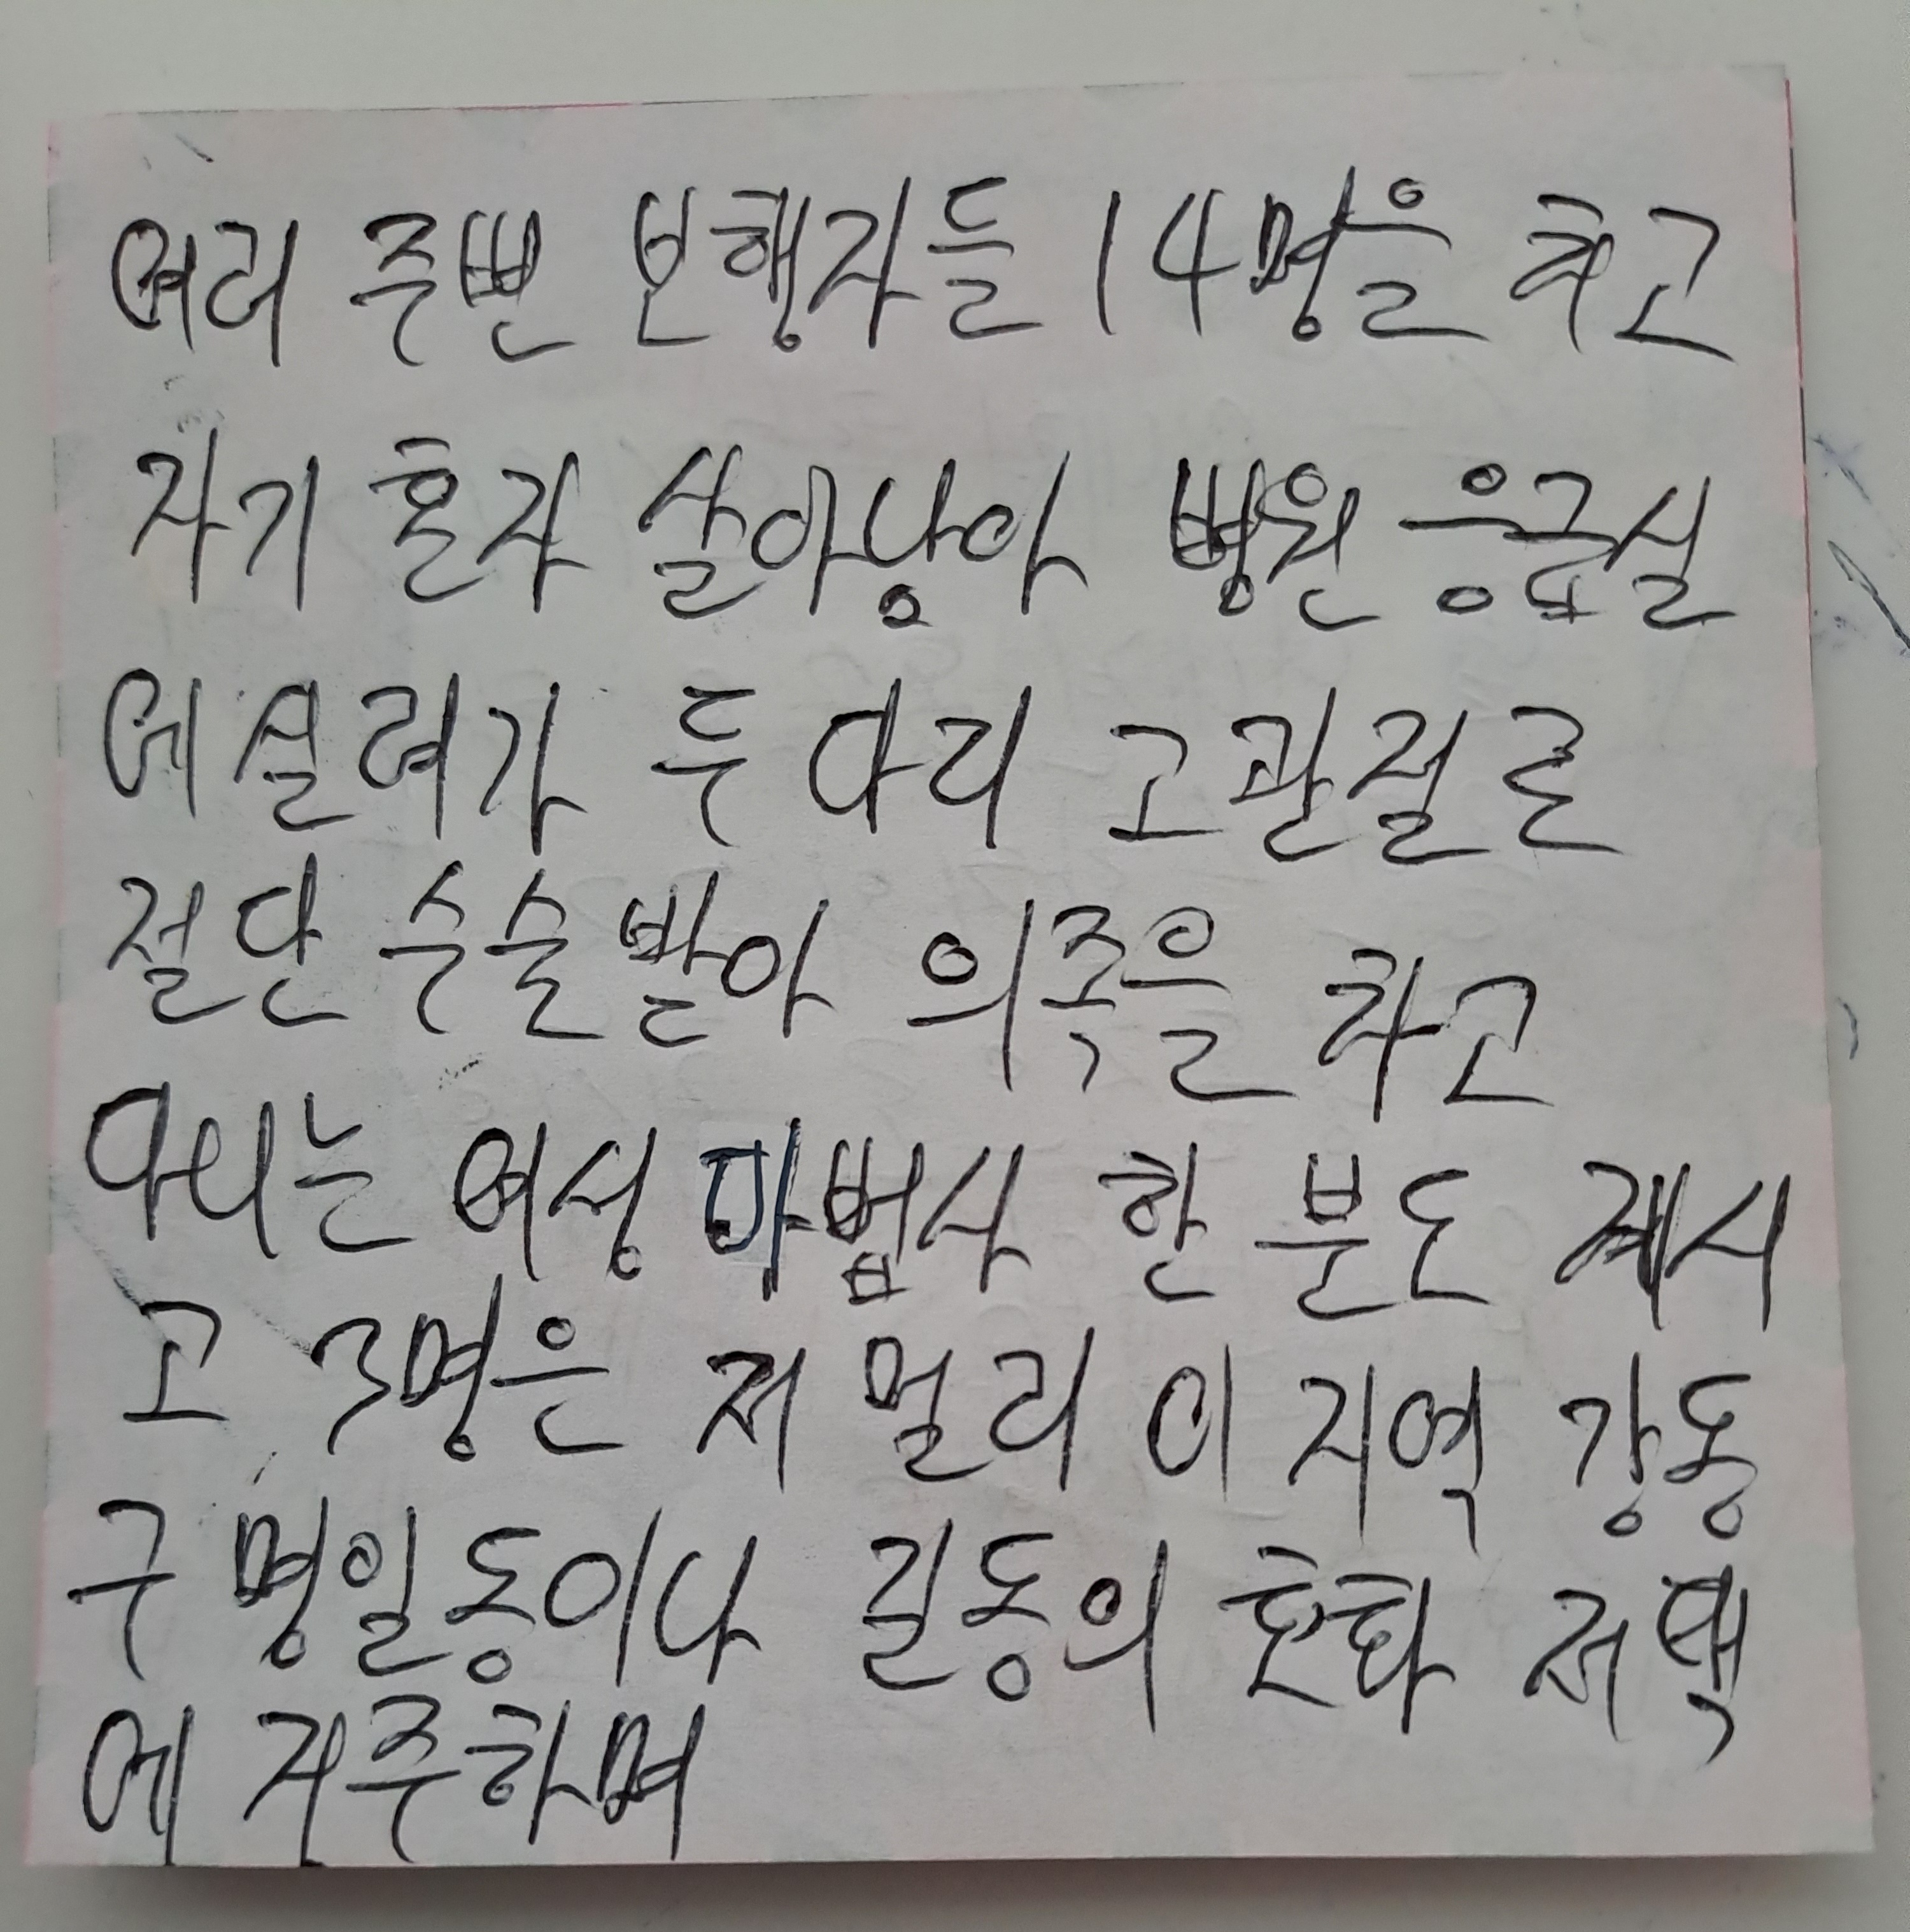 여러 주변 보행자들 14명을 치고
자기 혼자 살아낭아 병원 응급실
에 실려가 두 다리 고관절로
절단 수술 받아 의족을 차고
다니는 여성 마법사 한 분도 계시
고 3명은 저 멀리 이 지역 강동
구 명일동이나 길동의 호화 저택
에 거주하며